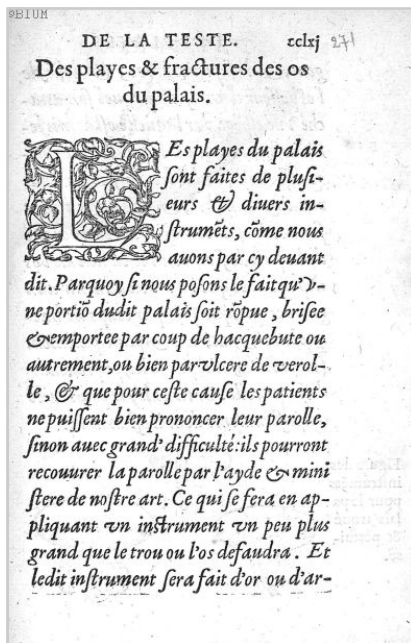 ©BIUM
DE LA TESTE. cclxj 271
Des playes & fractures des os
du palais.
LEs playes du palais
ſont faites de pluſi-
eurs & diuers in-
ſtrumẽts, cõme nous
auons par cy deuant
dit. Parquoy ſi nous poſons le fait qu'v-
ne portiõ dudit palais ſoit rõpue, briſee
& emportee par coup de hacquebute ou
autrement, ou bien par vlcere de verol-
le, & que pour ceſte cauſe les patients
ne puiſſent bien prononcer leur parolle,
ſinon auec grand' difficulté: ils pourront
recouurer la parolle par l'ayde & mini
ſtere de noſtre art. Ce qui ſe fera en ap-
pliquant vn inſtrument vn peu plus
grand que le trou ou l'os defaudra. Et
ledit inſtrument ſera fait d'or ou d'ar-